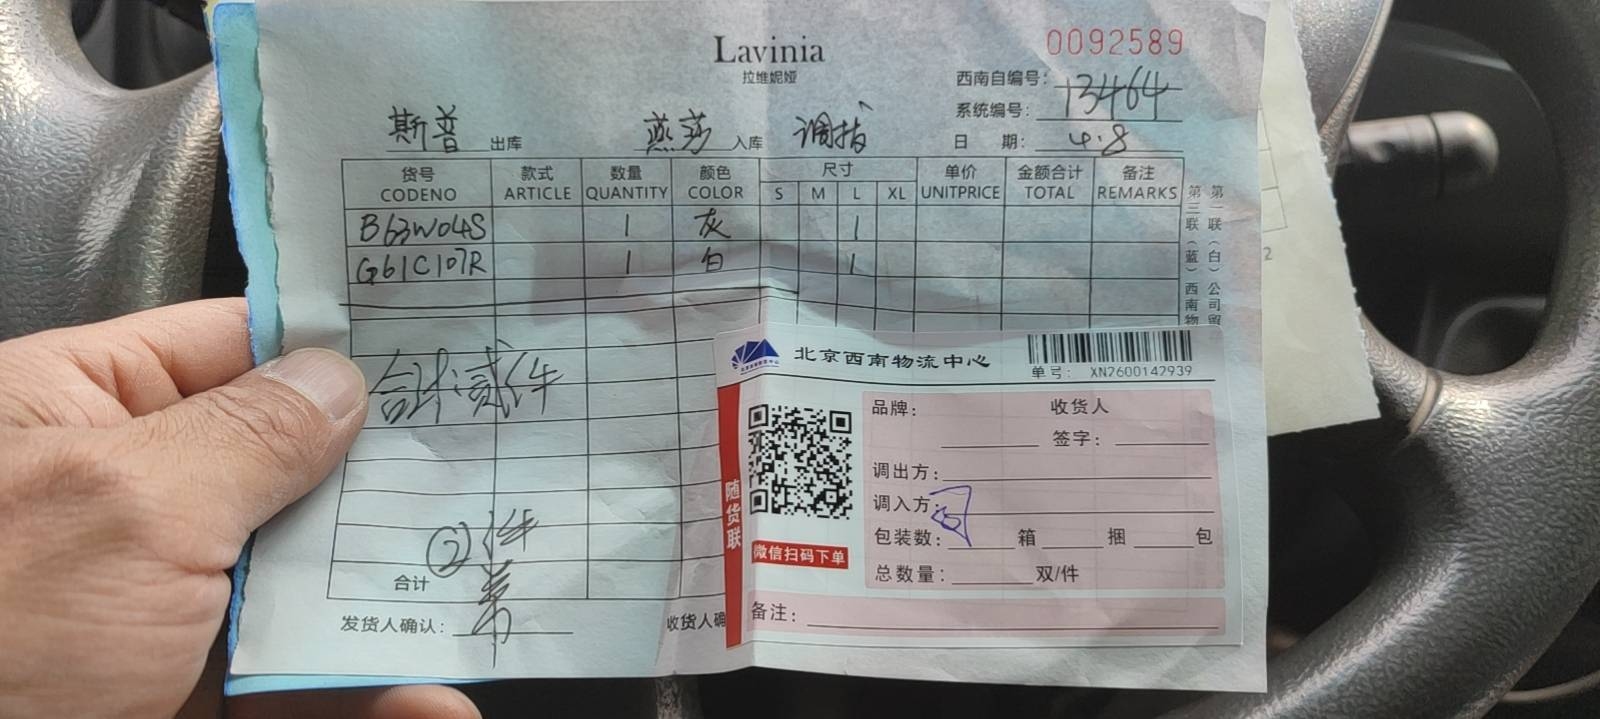 Lavinia
拉维妮娅
0092589
西南自编号: 13464
系统编号:
斯普 出库 燕莎 入库 调拨 日 期: 4.8
货号 款式 数量 颜色 尺寸 单价 金额合计 备注
CODENO ARTICLE QUANTITY COLOR S M L XL UNITPRICE TOTAL REMARKS
B63W04S 1 灰 1
G61C107R 1 白 1
第一联(白)公司留
第三联(蓝)西南物
合计贰件
② 件
合计
发货人确认:
收货人确
北京西南物流中心
单号: XN2600142939
随货联
微信扫码下单
品牌: 收货人
签字:
调出方:
调入方:
包装数: 箱 捆 包
总数量: 双/件
备注: